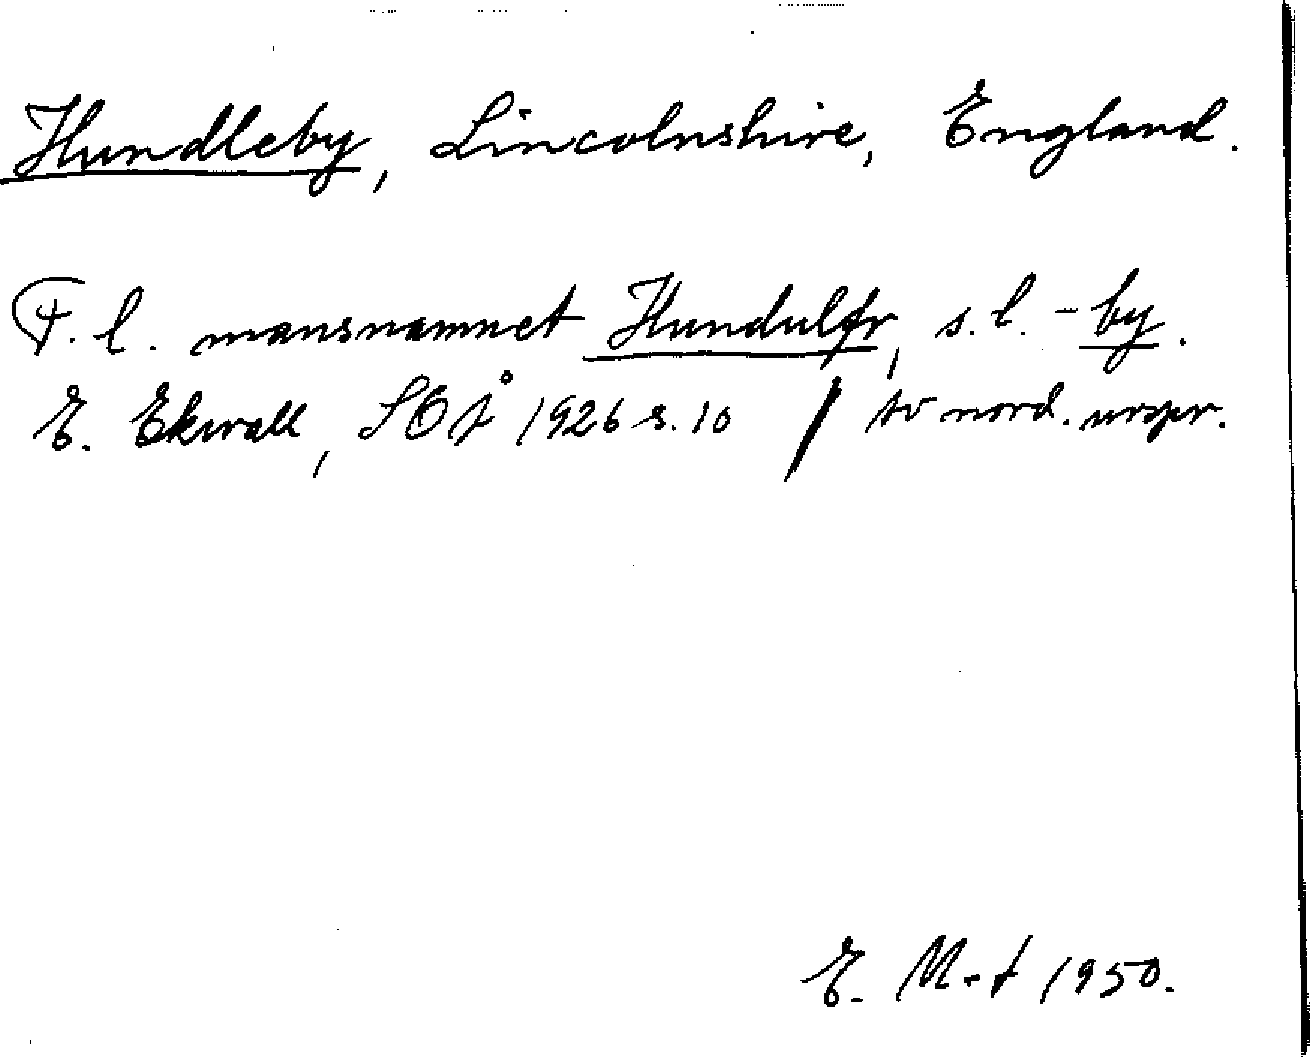 Hundleby, Lincolnshire, England.
F.l. mansnamnet Hundulfr, s.l. -by.
E. Ekwall, SOÅ 1926 s. 10 / av nord. urspr.
E. M-t 1950.